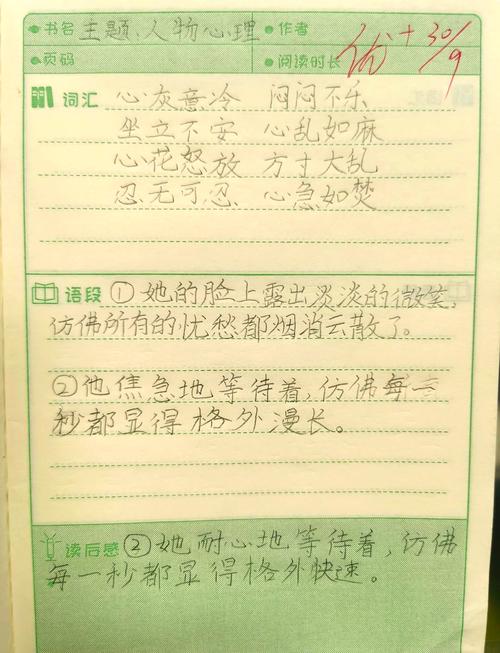 书名 主题、人物心理 作者
页码 阅读时长 优+ 30/9
词汇 心灰意冷 闷闷不乐
坐立不安 心乱如麻
心花怒放 方寸大乱
忍无可忍 心急如焚
语段 ①她的脸上露出淡淡的微笑,
仿佛所有的忧愁都烟消云散了。
②他焦急地等待着,仿佛每一
秒都显得格外漫长。
读后感 ②她耐心地等待着,仿佛
每一秒都显得格外快速。